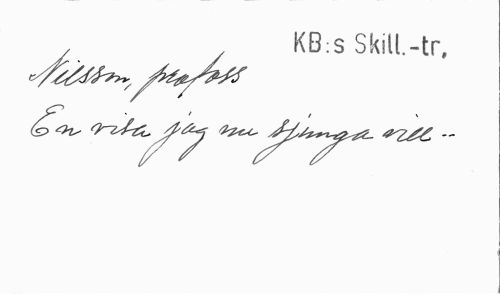 KB:s Skill.-tr,
Nilsson, profoss
En visa jag nu sjunga vill --